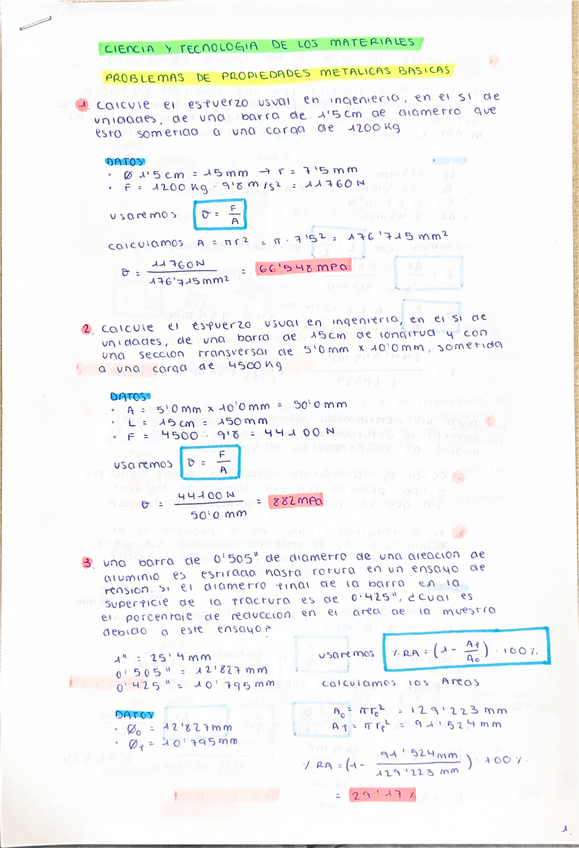 CIENCIA Y TECNOLOGIA DE LOS MATERIALES
PROBLEMAS DE PROPIEDADES METALICAS BASICAS
1 calcule el esfuerzo usual en ingenieria, en el SI de
unidades, de una barra de 1'5cm de diametro que
esta sometida a una carga de 1200kg
DATOS
· Ø 1'5cm = 15mm → r = 7'5mm
· F = 1200kg · 9'8m/s² = 11760N
usaremos σ = F/A
calculamos A = πr² = π · 7'5² = 176'715mm²
σ = 11760N / 176'715mm² = 66'548MPa
2. calcule el esfuerzo usual en ingenieria, en el SI de
unidades, de una barra de 15cm de longitud y con
una seccion transversal de 5'0mm x 10'0mm, sometida
a una carga de 4500kg
DATOS
· A = 5'0mm x 10'0mm = 50'0mm
· L = 15cm = 150mm
· F = 4500 · 9'8 = 44100N
usaremos σ = F/A
σ = 44100N / 50'0mm = 882MPa
3. una barra de 0'505" de diametro de una aleacion de
aluminio es estirada hasta rotura en un ensayo de
tension. si el diametro final de la barra en la
superficie de la fractura es de 0'425", ¿cual es
el porcentaje de reduccion en el area de la muestra
debido a este ensayo?
1" = 25'4mm
0'505" = 12'827mm
0'425" = 10'795mm
DATOS
· Ø₀ = 12'827mm
· Ø_f = 10'795mm
usaremos %RA = (1 - A_f/A₀) · 100%
calculamos las Areas
A₀ = πr₀² = 129'223mm
A_f = πr_f² = 91'524mm
%RA = (1 - 91'524mm / 129'223mm) · 100%
= 29'17%
1.